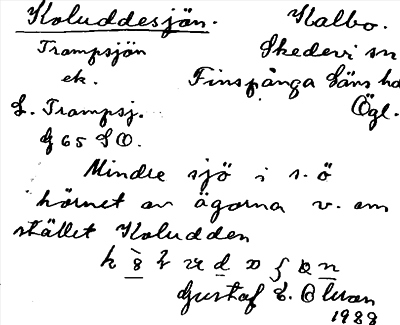 Koluddesjön. Kalbo.
Trampsjön Skedevi sn
ek. Finspånga läns hd
L. Trampsj. Ögl.
G 65 SO.
Mindre sjö i s. ö
hörnet av ägorna v. om
stället Koludden
Gustaf E. Olson
1928